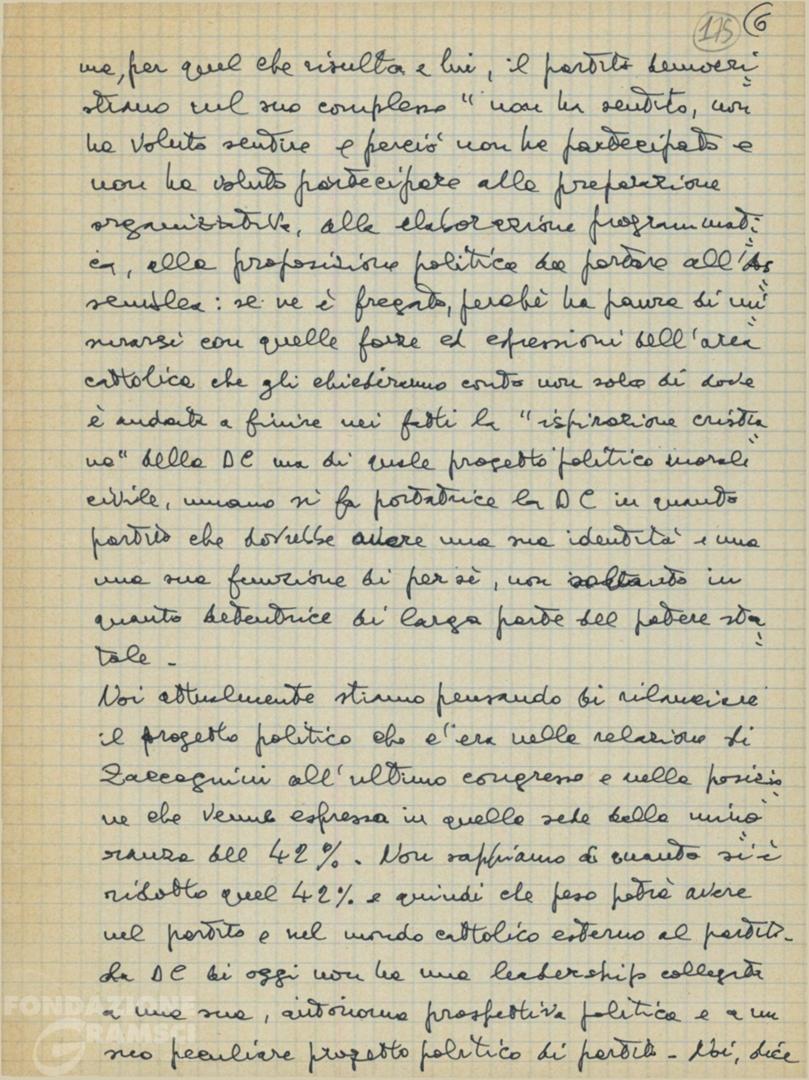 175 6
ma, per quel che risulta a lui, il partito democri=
stiano nel suo complesso "non ha sentito, non
ha voluto sentire e perciò non ha partecipato e
non ha voluto partecipare alla preparazione
organizzativa, alla elaborazione programmati=
ca, alla proposizione politica da portare all'As=
semblea: se ne è fregato, perchè ha paura di mi=
surarsi con quelle forze ed espressioni dell'area
cattolica che gli chiederanno conto non solo di dove
è andata a finire nei fatti la "ispirazione cristia=
na" della DC ma di quale progetto politico morale
civile, umano si fa portatrice la DC in quanto
partito che dovrebbe avere una sua identità e una
una sua funzione di per sè, non soltanto in
quanto detentrice di larga parte del potere sta=
tale -
Noi attualmente stiamo pensando di rilanciare
il progetto politico che c'era nella relazione di
Zaccagnini all'ultimo congresso e nella posizio=
ne che venne espressa in quella sede dalla mino=
ranza del 42%. Non sappiamo di quanto si è
ridotto quel 42% e quindi che peso potrà avere
nel partito e nel mondo cattolico esterno al partito.
La DC di oggi non ha una leadership collegata
a una sua, autonoma prospettiva politica e a un
suo peculiare progetto politico di partito - Noi, dice
FONDAZIONE
GRAMSCI